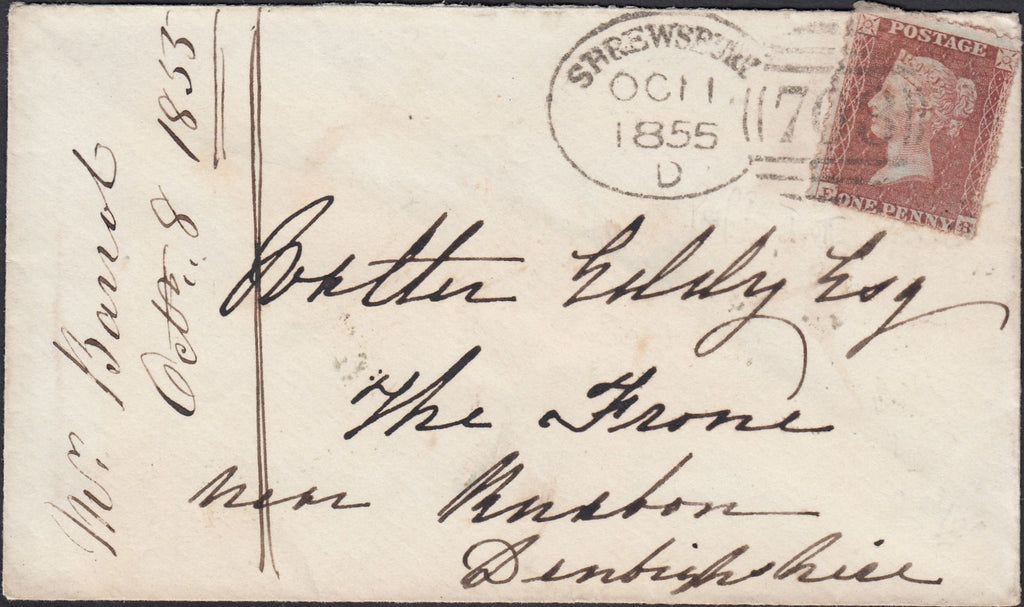 SHREWSBURY
OC 11
1855
D
708
POSTAGE
E ONE PENNY B
Walter Eddy Esq
The Frone
near Ruabon
Denbighshire
Mr. Barrot
Octr. 8 1855